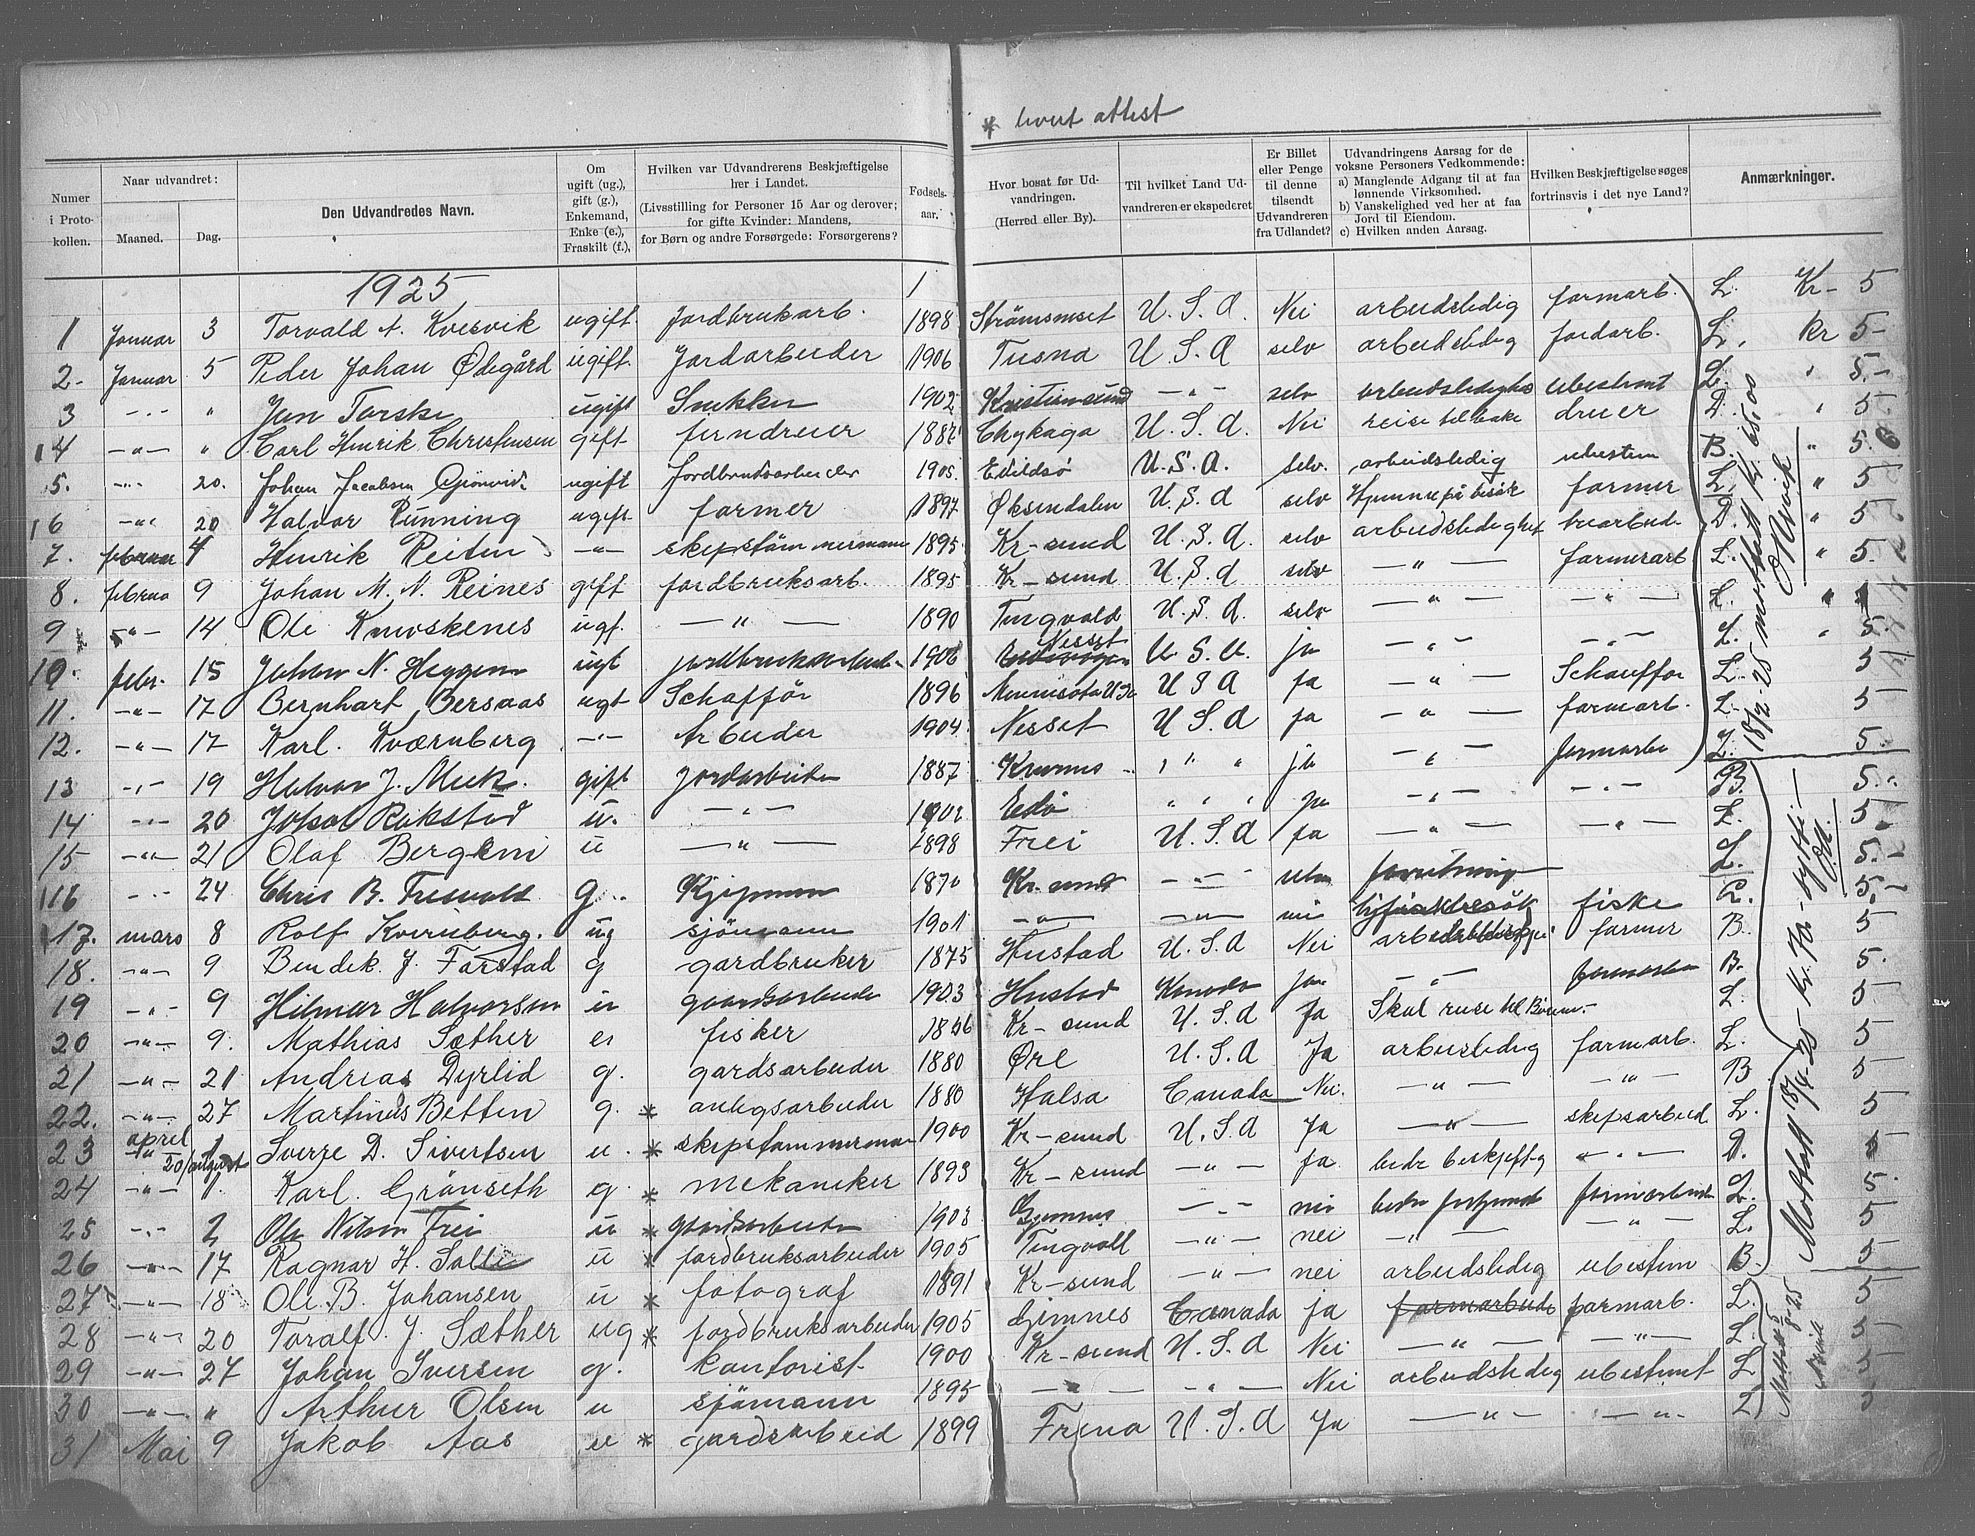 * hvert attest
Numer i Protokollen. Naar udvandret: Maaned. Dag. Den Udvandredes Navn. Om ugift (ug.), gift (g.), Enkemand, Enke (e.), Fraskilt (f.), Hvilken var Udvandrerens Beskjæftigelse her i Landet. (Livsstilling for Personer 15 Aar og derover; for gifte Kvinder: Mandens, for Børn og andre Forsørgede: Forsørgerens? Fødselsaar. Hvor bosat før Udvandringen. (Herred eller By). Til hvilket Land Udvandreren er ekspederet Er Billet eller Penge til denne tilsendt Udvandreren fra Udlandet? Udvandringens Aarsag for de voksne Personers Vedkommende: a) Manglende Adgang til at faa lønnende Virksomhed. b) Vanskelighed ved her at faa Jord til Eiendom. c) Hvilken anden Aarsag. Hvilken Beskjæftigelse søges fortrinsvis i det nye Land? Anmærkninger.
1925
1 Januar 3 Torvald A. Kvesvik ugift Jordbrukarb. 1898 Strømsmset U.S.A. Nei arbeidsledig farmarb. L. Kr- 5
2- Januar 5 Peder Johan Ødegård ugift. Jordarbeider 1906 Tusna U S A selv arbeidsledig jordarb. L. kr 5-
3 -"- " Jen Torske ugift Snekker 1902 Kristiansund -"- selv ubestemt 5.-
4 -"- " Carl Henrik Christensen gift 1887 Chykaga U.S.A. Nei reise tilbake D. " 5
5. -"- 20. Johan Jacobsen ugift Jordbruksarbeider 1905 U.S.A. selv. arbeidsledig ubestem B. " 5.
6 -"- 20 Halvor Running ugift farmer 1897 Øksendalen U.S.A selv farmer L. " 5
7. februar 4 Henrik Reiten -"- skipstømmermann 1895 Kr-sund U.S.A. selv arbeidsledighet D. " 5
8. februa 9 Johan M. N. Reines gift jordbruksarb. 1895 Kr-sund U.S.A selv -"- farmerarb L. " 5.
9 -"- 14 Ole ugf. -"- 1890 Tingvold U.S.A. selv -"- -"- L.
10. febr. 15 Johan N. Heggem ugt 1906 Nesset U.S.A. ja -"- -"- L. " 5.
11. -"- 17 Bernhart Bersaas ugt Schafför 1896 Minnisota U S A ja -"- Schauffør L. 5
12. -"- 17 Karl. Kværnberg -"- Arbeider 1904 Nesset U S A ja -"- farmarb. L. 5
13 -"- 19 Halvor J. Meek. gift jordarbeider 1887 " " " ja -"- L. 5.
14 -"- 20 u. -"- 1902 Edø " " " ja -"- -"- B. 5.
15 -"- 21 Olaf Bergheim u -"- 1898 Frei U.S.A ja -"- -"- L. 5
16 -"- 24 Chris B. g. 1870 Kr.sund -"- forretning L. 5.-
17. mars 8 Rolf Kvernberg. ug sjömann 1901 -"- -"- nei fiske 5.-
18. -"- 9 Bendik J. Farstad g gardbruker 1875 Hustad U.S.A Nei farmer B. 5
19 -"- 9 Hilmar Halvorsen u gaardsarbeider 1903 Hustad Kanada ja -"- B. 5.
20 -"- 9. Mathias Sæther e fisker Kr-sund U.S.A ja L. 5
21 -"- 21 Andreas Dyrlid g. gardsarbeider 1880 Øre U.S.A Ja arbeisledig farmarb. L. 5
22. -"- 27 Martinus Betten g. * anlegsarbeider 1880 Halsa Canada Nei -"- -"- B 5
23 april 1 Sverre D. Sivertsen u. * skipstømmermann 1900 Kr-sund U.S.A Ja -"- skipsarbeid L. 5
24 -"- 1. Karl. Grönseth g. * mekaniker 1893 Kr-sund -"- ja bedre -"- 5
25 -"- 2 Ole Nilsen Frei u * gaardsarbeider 1903 -"- nei L. 5.
26 -"- 17 Ragnar H. u * jordbruksarbeider 1905 Tingvoll -"- nei -"- -"- L. 5
27 -"- 18 Ole. B. Johansen u * fotograf 1891 Kr-sund -"- nei arbeidsledig ubestem B. 5
28 -"- 20 Toralf. J. Sæther ug * jordbruksarbeider 1905 Gimnes Canada ja farmarb. L. 5
29 -"- 27 Johan Iversen g. kontorist 1900 Kr-sund U.S.A Nei -"- -"- L. 5
30 -"- " Arthur Olsen u sjömann 1895 -"- -"- Nei arbeidsledig ubestemt L 5
31 Mai 9 Jakob Aas u * gardsarbeid 1899 Frena U.S.A Ja -"- -"- L 5
18/2-25 mottatt kr. 65,00